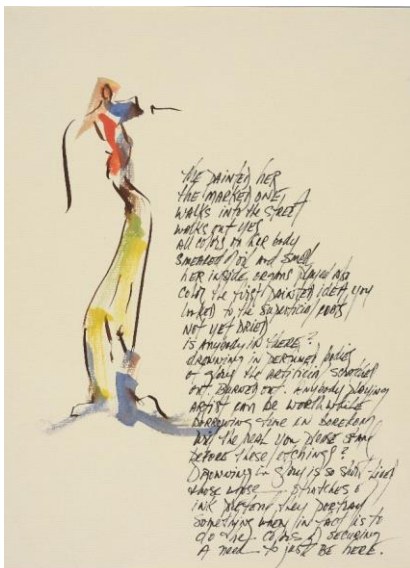 He PAINTED HER
the MARKED ONE,
WALKS INTO the STREET
WALKS OUT YES
All COLORS ON HER BODY
SMEARED OIL AND SMELL
HER INSIDE ORGANS
COLOR the FIRST PAINTED you
to the SUPERFICIAL
NOT YET DRIED
IS ANYBODY IN THERE?
DROWNING IN PERFUMED
the ARTIFICIAL
OUT. BURNED OUT. ANYBODY PLAYING
ARTIST CAN BE WORTHWHILE
BORROWING TIME IN BOREDOM
the REAL you PLEASE STAND
BEFORE THOSE ETCHINGS?
DROWNING IN GLORY IS SO SHORT LIVED
THOSE STRETCHES OF
INK PRETEND THEY PORTRAY
SOMETHING WHEN IN FACT IS TO
SECURING
A NEED TO JUST BE HERE.